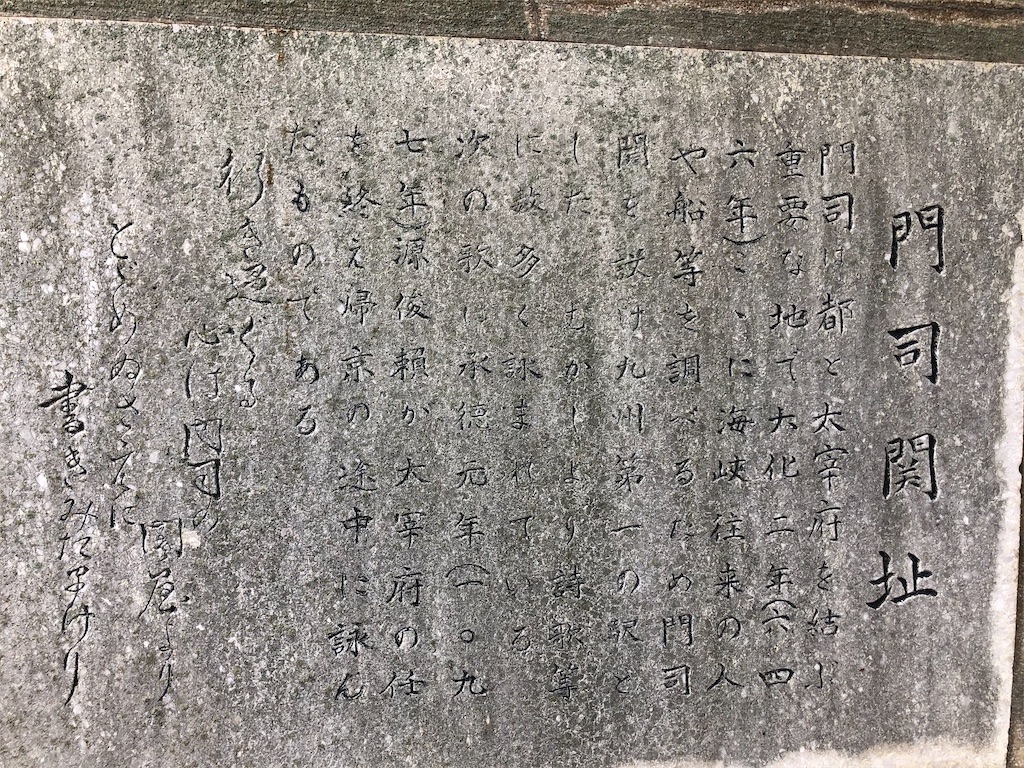 門司関址
門司は都と大宰府を結ぶ
重要な地で大化二年(六四
六年)こゝに海峡往来の人
や船等を調べるため門司
関を設け九州第一の駅と
した むかしより詩歌等
に数多く詠まれている
次の歌は承徳元年(一〇九
七年)源俊頼が大宰府の任
を終え帰京の途中に詠ん
だものである
行き過ぐる
心は門司の
関屋より
とゞめぬさへに
書きみだりけり